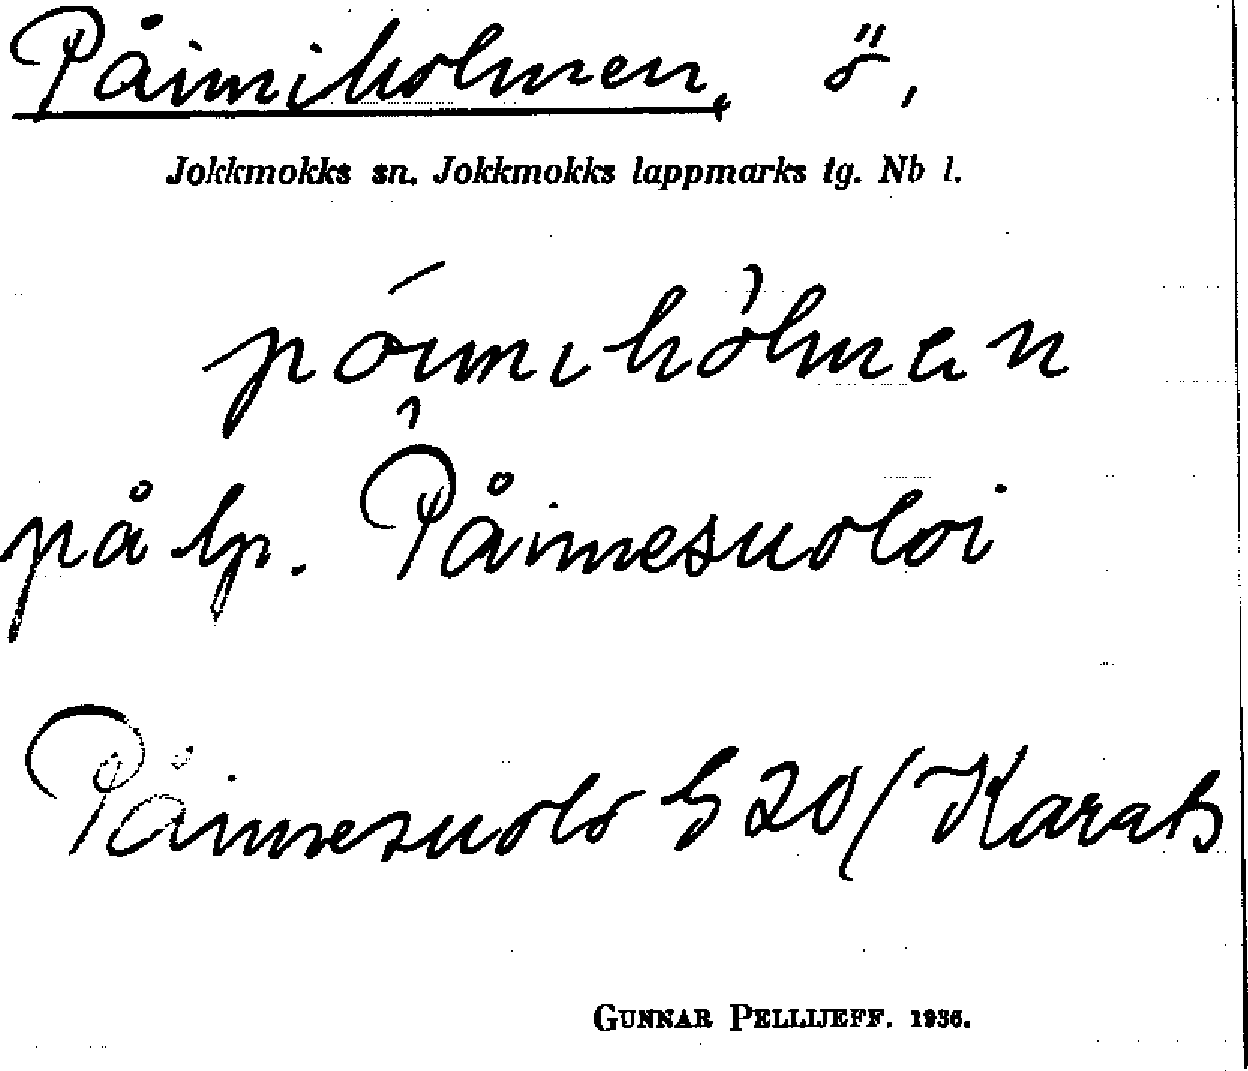 Påimiholmen, ö,
Jokkmokks sn. Jokkmokks lappmarks tg. Nb l.
påimihòlmen
på lp. Påimesuoloi
Påimesuolo G 20/Karats
GUNNAR PELLIJEFF. 1936.